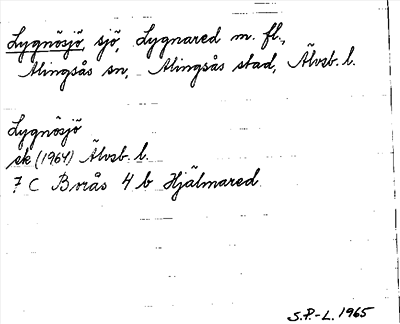 Lygnösjö, sjö, Lygnared m. fl.,
Alingsås sn, Alingsås stad, Älvsb. l.
Lygnösjö
ek (1964) Älvsb. l.
7 C Borås 4 b Hjälmared
S.P.-L. 1965